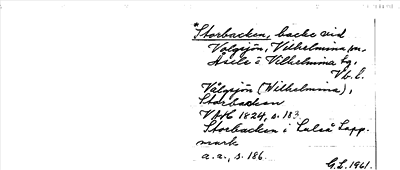 *Storbacken, backe vid
Volgsjön, Vilhelmina sn.
Åsele o Vilhelmina tg.
Vb. l.
Vålgsjön (Wilhelmina),
Storbacken
VAH 1824, s. 183.
Storbacken i Luleå Lapp-
mark
a.a., s. 186.
G.L. 1961.